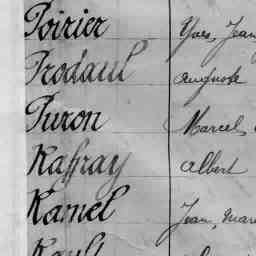 Poirier Yves, Jean
Prodaul Auguste
Puron Marcel
Raffray Albert
Ramel Jean, Marc
Rault